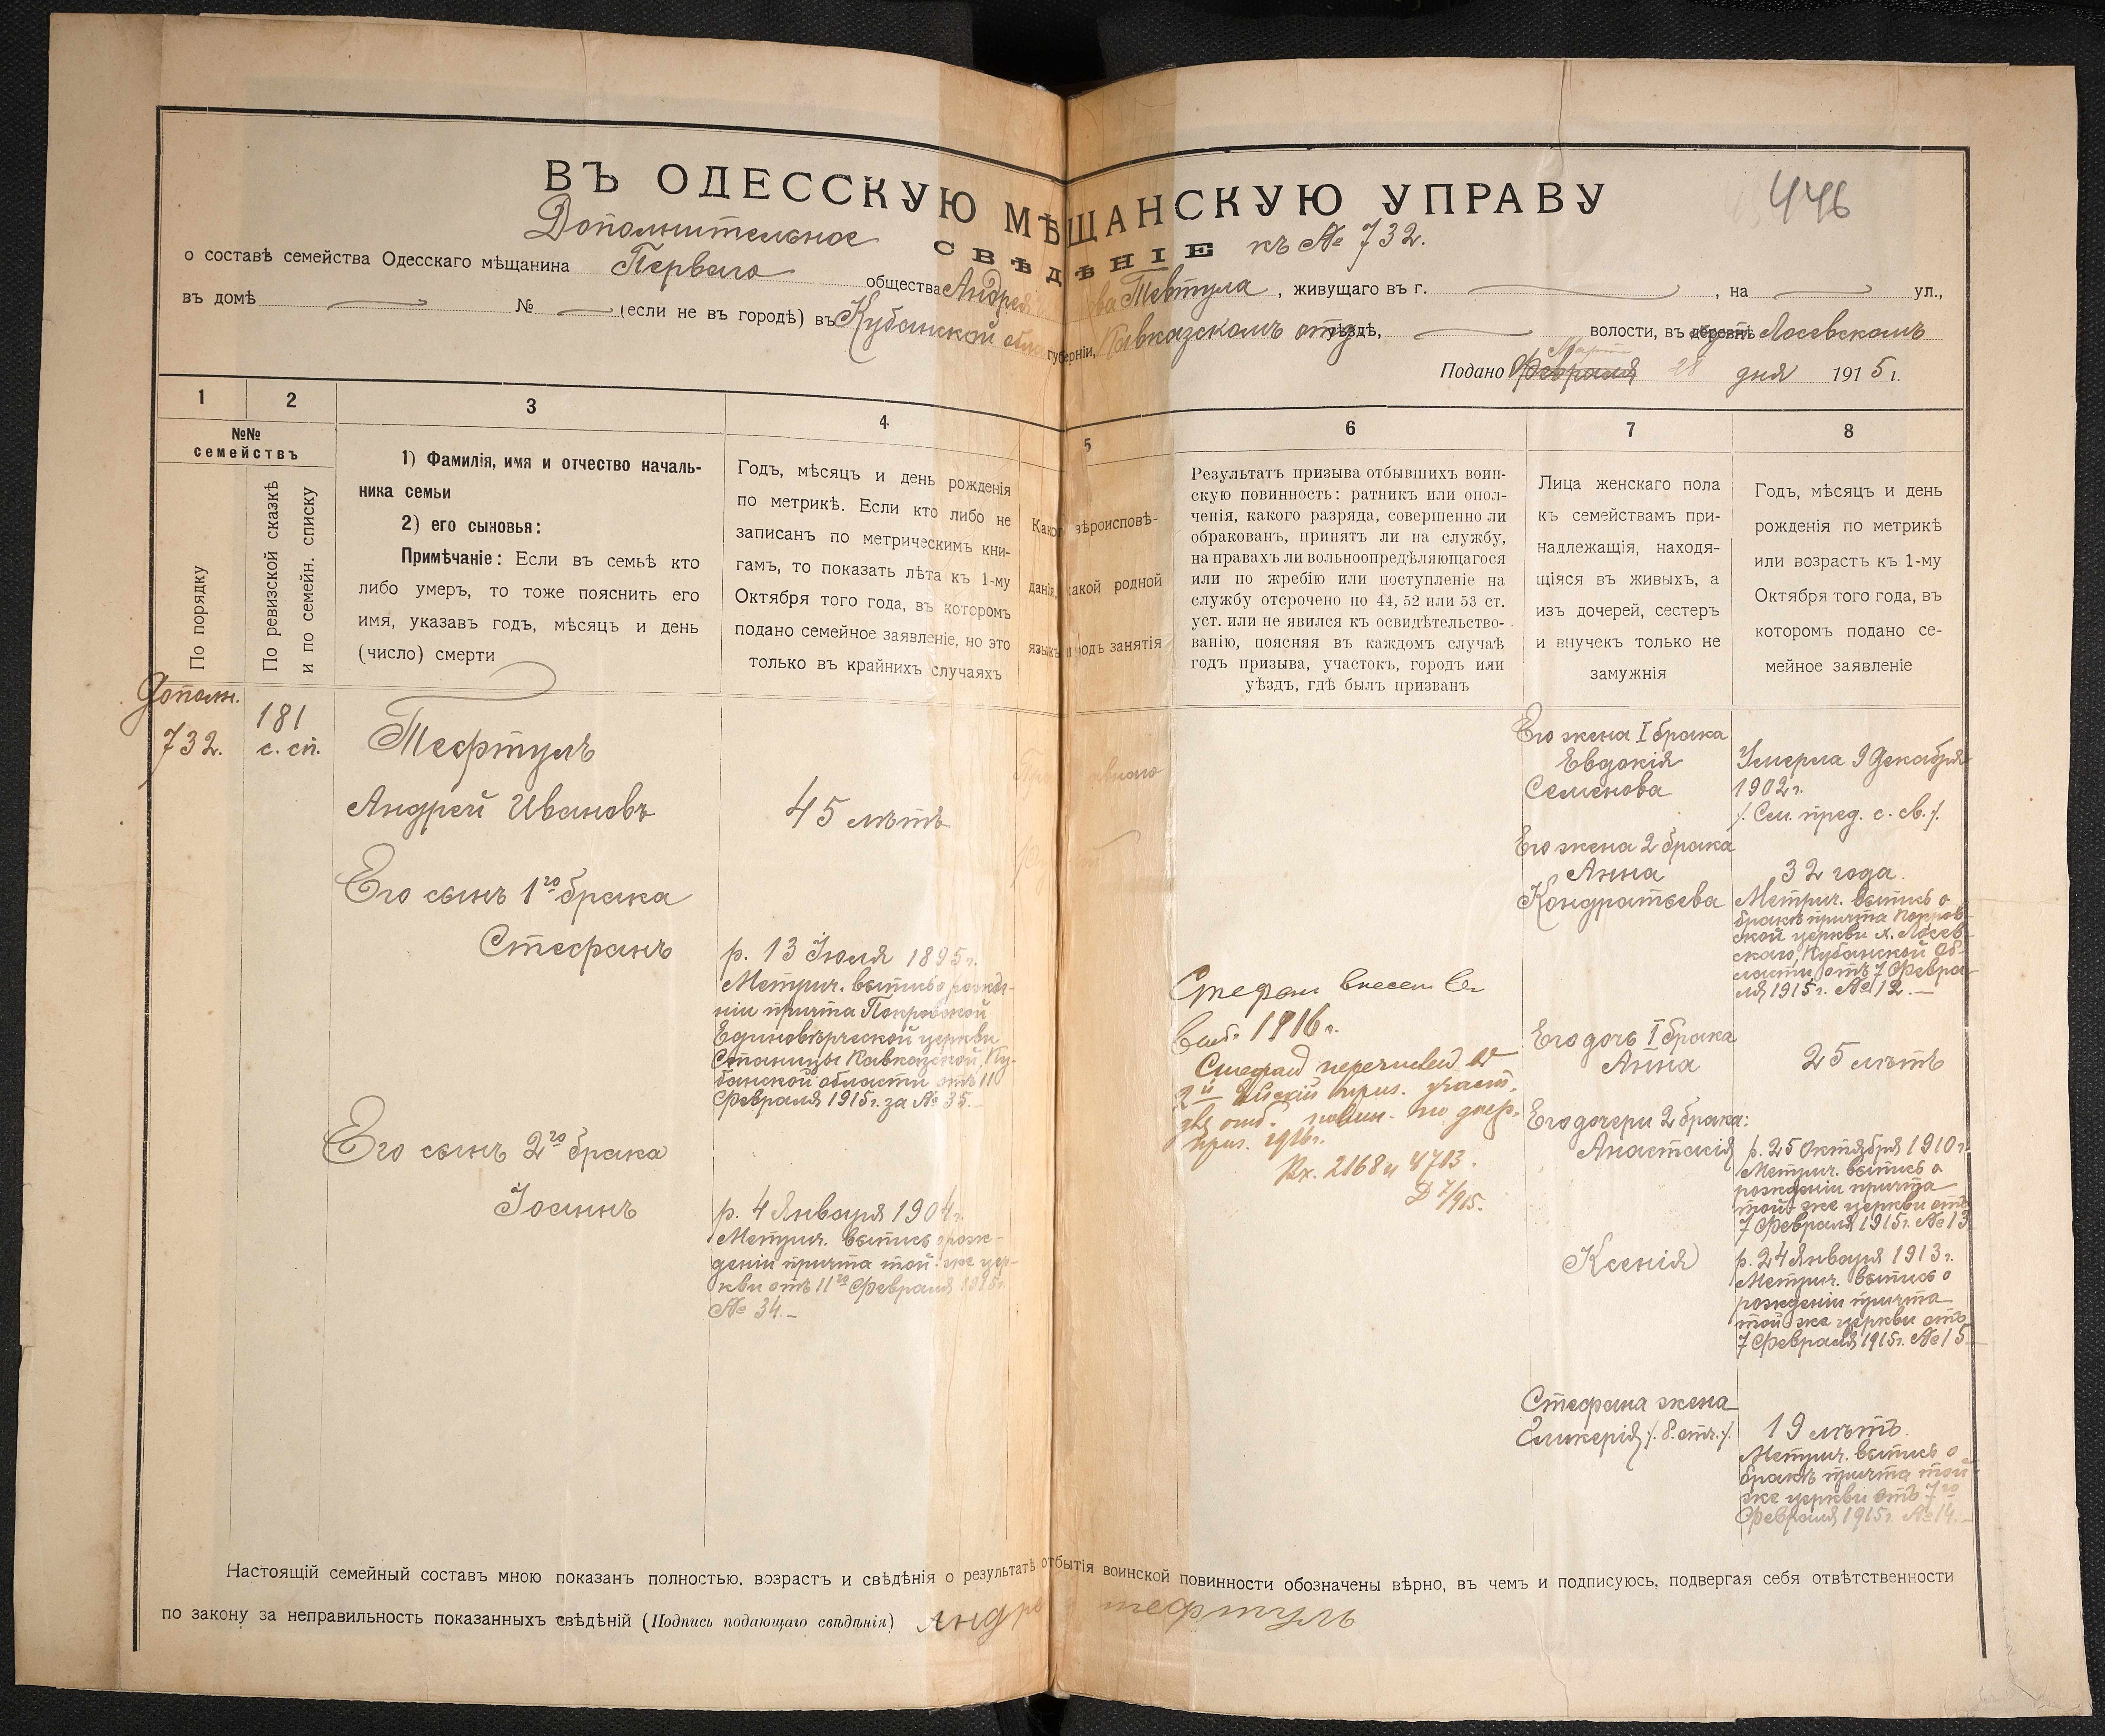 ВЪ ОДЕССКУЮ МѢЩАНСКУЮ УПРАВУ
446
Дополнительное СВѢДѢНІЕ къ № 732.
о составѣ семейства Одесскаго мѣщанина Перваго общества Андрея Тевтула, живущаго въ г. , на ул.,
въ домѣ № (если не въ городѣ) въ Кубанской губерніи, Кавказскомъ отд уѣздѣ, волости, въ деревнѣ Лосевскомъ
Март
Подано Февраля 28 дня 1915 г.
1
2
3
4
5
6
7
8
№№
семействъ
По порядку
По ревизской сказкѣ
и по семейн. списку
1) Фамилія, имя и отчество началь-
ника семьи
2) его сыновья:
Примѣчаніе: Если въ семьѣ кто
либо умеръ, то тоже пояснить его
имя, указавъ годъ, мѣсяцъ и день
(число) смерти
Годъ, мѣсяцъ и день рожденія
по метрикѣ. Если кто либо не
записанъ по метрическимъ кни-
гамъ, то показать лѣта къ 1-му
Октября того года, въ которомъ
подано семейное заявленіе, но это
только въ крайнихъ случаяхъ
Какого вѣроисповѣ-
данія, какой родной
языкъ и родъ занятія
Результатъ призыва отбывшихъ воин-
скую повинность: ратникъ или опол-
ченія, какого разряда, совершенно ли
обракованъ, принятъ ли на службу,
на правахъ ли вольноопредѣляющагося
или по жребію или поступленіе на
службу отсрочено по 44, 52 или 53 ст.
уст. или не явился къ освидѣтельство-
ванію, поясняя въ каждомъ случаѣ
годъ призыва, участокъ, городъ или
уѣздъ, гдѣ былъ призванъ
Лица женскаго пола
къ семействамъ при-
надлежащія, находя-
щіяся въ живыхъ, а
изъ дочерей, сестеръ
и внучекъ только не
замужнія
Годъ, мѣсяцъ и день
рожденія по метрикѣ
или возрастъ къ 1-му
Октября того года, въ
которомъ подано се-
мейное заявленіе
Дополн.
732.
181
с. сп.
Тефтулъ
Андрей Ивановъ
45 лѣтъ
Его сынъ 1го брака
Стефанъ
р. 13 Іюля 1895 г.
Метрич. выпись о рожде-
ніи причта Покровской
Единовѣрческой церкви
Станицы Кавказской, Ку-
банской области отъ 11
Февраля 1915 г. за № 35.
Его сынъ 2го брака
Іоаннъ
р. 4 Января 1904 г.
Метрич. выпись о рож-
деніи причта той-же цер-
кви отъ 11го Февраля 1915 г.
№ 34.
Стефан внесен въ
1916 г.
Стефан перечислен во
2й приз. участ.
отб. повин. по
приз. 1916 г.
Вх. 2168 и 4713.
7/915.
Его жена I брака
Евдокія
Семенова
Умерла 9 Декабря
1902 г.
/. См. пред. с. св. /.
Его жена 2 брака
Анна
Кондратьева
32 года.
Метрич. выпись о
бракѣ причта Покров-
ской церкви х. Лосев-
скаго, Кубанской Об-
ласти, отъ 7 Февра-
ля 1915 г. № 12.
Его дочь I брака
Анна
25 лѣтъ
Его дочери 2 брака:
Анастасія
р. 25 Октября 1910 г.
Метрич. выпись о
рожденіи причта
той же церкви отъ
7 Февраля 1915 г. № 13
Ксенія
р. 24 Января 1913 г.
Метрич. выпись о
рожденіи причта
той же церкви отъ
7 Февраля 1915 г. № 15
Стефана жена
Гликерія /. б. отч. /.
19 лѣтъ.
Метрич. выпись о
бракѣ причта той
же церкви отъ 7го
Февраля 1915 г. № 14.
Настоящій семейный составъ мною показанъ полностью, возрастъ и свѣдѣнія о результатѣ отбытія воинской повинности обозначены вѣрно, въ чемъ и подписуюсь, подвергая себя отвѣтственности
по закону за неправильность показанныхъ свѣдѣній (Подпись подающаго свѣдѣнія) Андрей тефтулъ